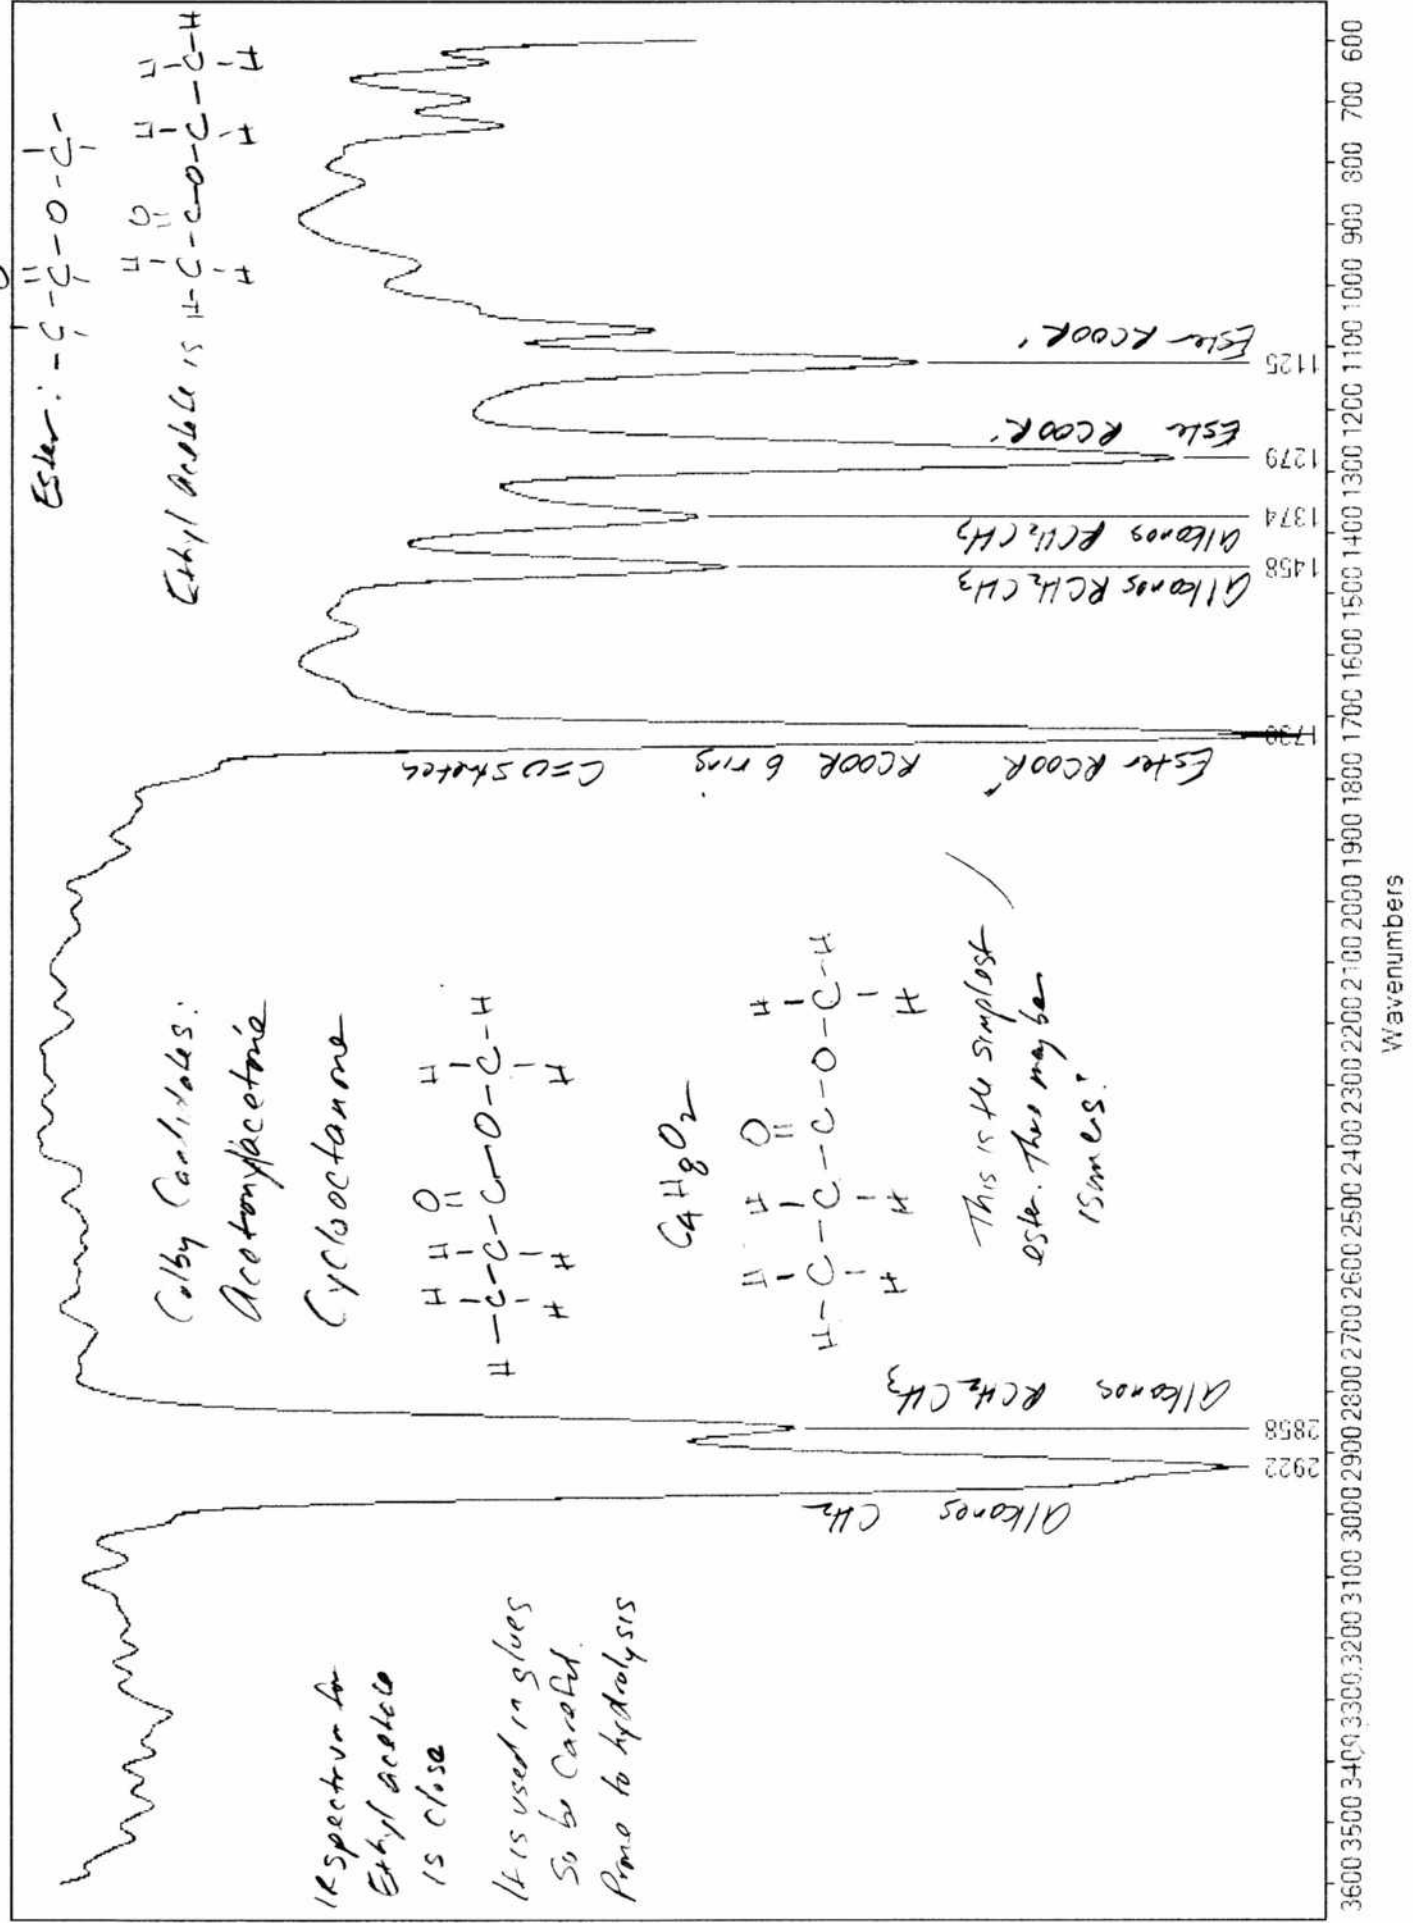 Ester:
Ethyl acetate is
IR spectrum for
Ethyl acetate
is close
It is used in glues
So be Careful.
Prone to hydrolysis
Colby Candidates:
Acetonylacetone
Cyclooctanone
C4H8O2
This is the simplest
ester. There may be
isomers!
Alkanes CH2
Alkanes RCH2CH3
Ester RCOOR' RCOOR 6 ring C=O stretch
Alkanes RCH2CH3
Alkanes RCH2CH3
Ester RCOOR'
Ester RCOOR'
2922
2858
1458
1374
1279
1125
3600 3500 3400 3300 3200 3100 3000 2900 2800 2700 2600 2500 2400 2300 2200 2100 2000 1900 1800 1700 1600 1500 1400 1300 1200 1100 1000 900 800 700 600
Wavenumbers